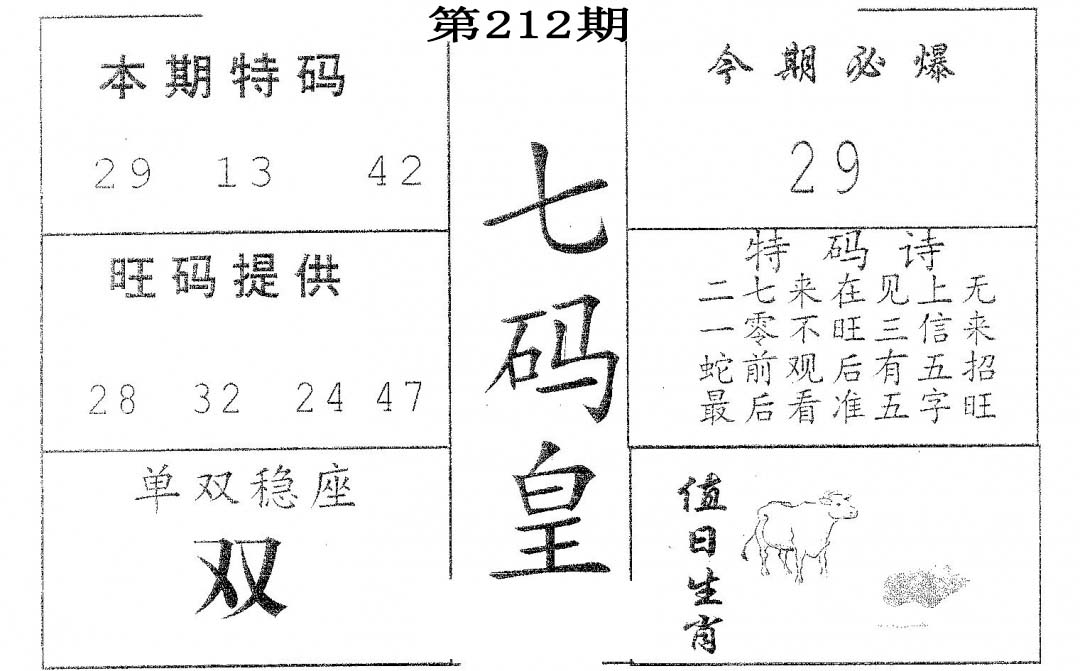 第212期
本期特码
29 13 42
旺码提供
28 32 24 47
单双稳座
双
七码皇
今期必爆
29
特码诗
二七来在见上无
一零不旺三信来
蛇前观后有五招
最后看准五字旺
值日生肖